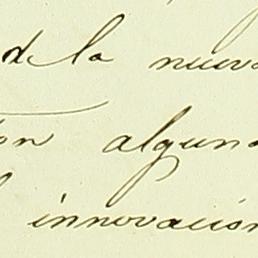 de la nueva
on alguna
innovación